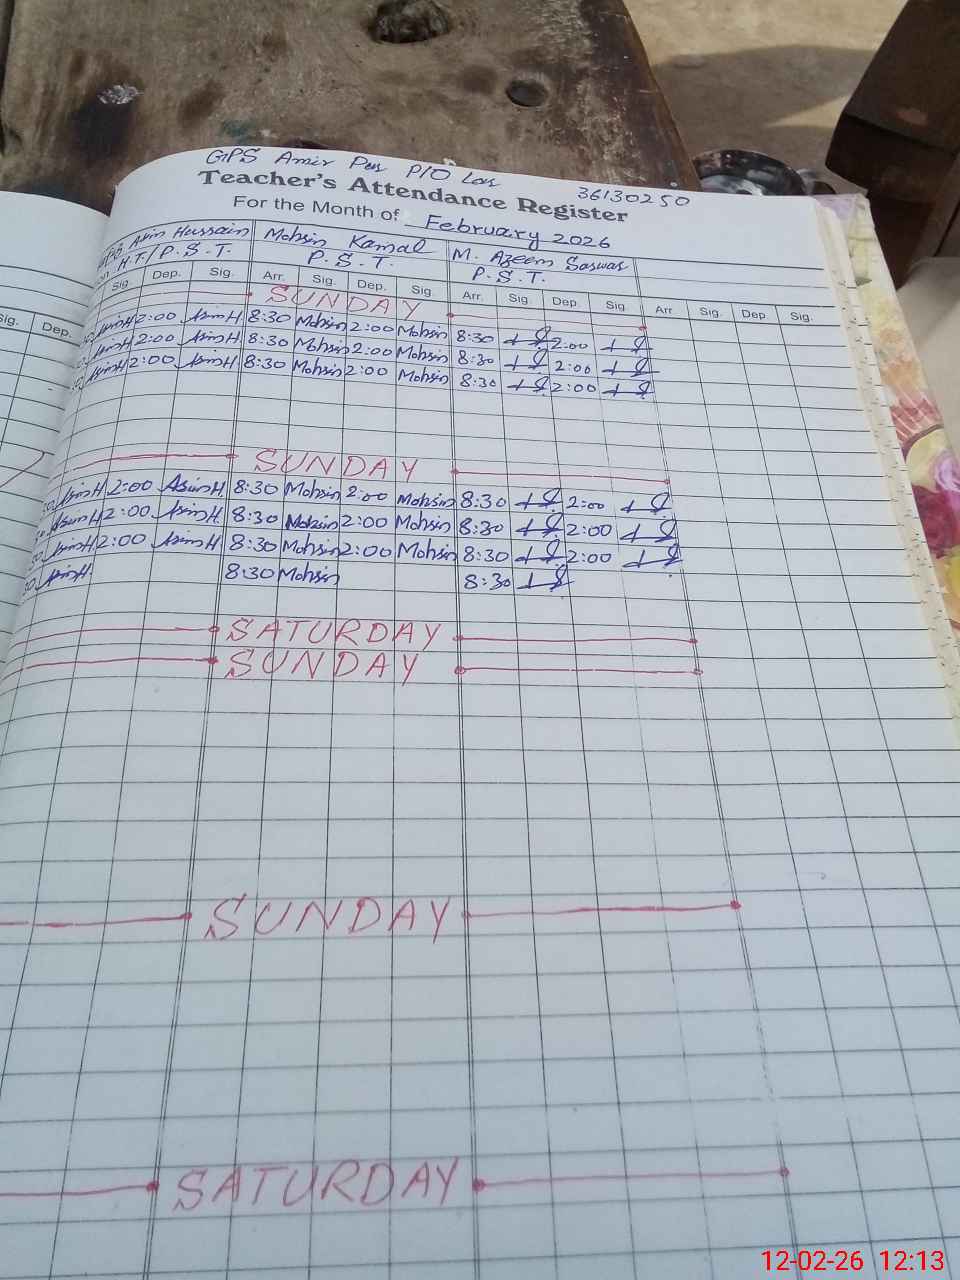 GPS Amir Pur P/O Lar
36130250
Teacher's Attendance Register
For the Month of February 2026
Asim Hussain Mohsin Kamal M. Azeem Sarwar
H.T/P.S.T. P.S.T. P.S.T.
Sig. Dep. Sig. Arr. Sig. Dep. Sig. Arr. Sig. Dep. Sig. Arr. Sig. Dep. Sig.
Sig. Dep.
SUNDAY
AsimH 2:00 AsimH 8:30 Mohsin 2:00 Mohsin 8:30 2:00
AsimH 2:00 AsimH 8:30 Mohsin 2:00 Mohsin 8:30 2:00
AsimH 2:00 AsimH 8:30 Mohsin 2:00 Mohsin 8:30 2:00
SUNDAY
AsimH 2:00 AsimH 8:30 Mohsin 2:00 Mohsin 8:30 2:00
AsimH 2:00 AsimH 8:30 Mohsin 2:00 Mohsin 8:30 2:00
AsimH 2:00 AsimH 8:30 Mohsin 2:00 Mohsin 8:30 2:00
AsimH 8:30 Mohsin 8:30
SATURDAY
SUNDAY
SUNDAY
SATURDAY
12-02-26 12:13